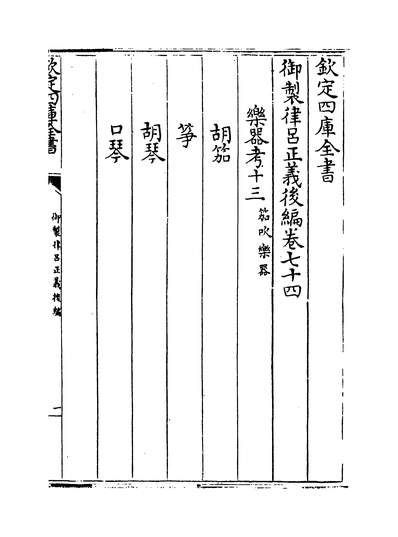 欽定四庫全書
御製律呂正義後編卷七十四
樂器考十三 笳吹樂器
胡笳
箏
胡琴
口琴
欽定四庫全書
御製律呂正義後編
一